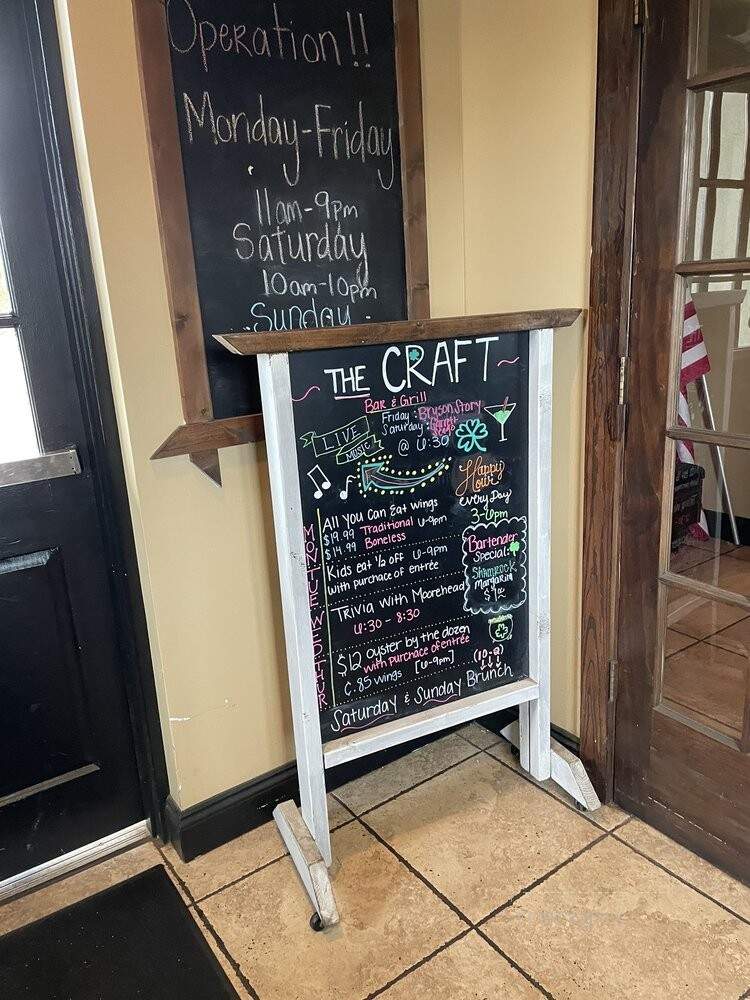 Operation!!
Monday-Friday
11am-9pm
Saturday
10am-10pm
Sunday
THE CRAFT
Bar & Grill
Friday: Bryson Story
Saturday:
@ 6:30
LIVE
MUSIC
Happy
Hour
every Day
3-6pm
All You Can Eat wings
$19.99 Traditional 6-9pm
$14.99 Boneless
Kids eat 1/2 off 6-9pm
with purchace of entrée
Trivia with Moorehead
6:30 - 8:30
$12 oyster by the dozen
with purchace of entrée
¢.85 wings [6-9pm]
MON TUE WED THUR
Bartender
Special:
SHAMROCK
MARGARITA
(10-2)
Saturday & Sunday Brunch